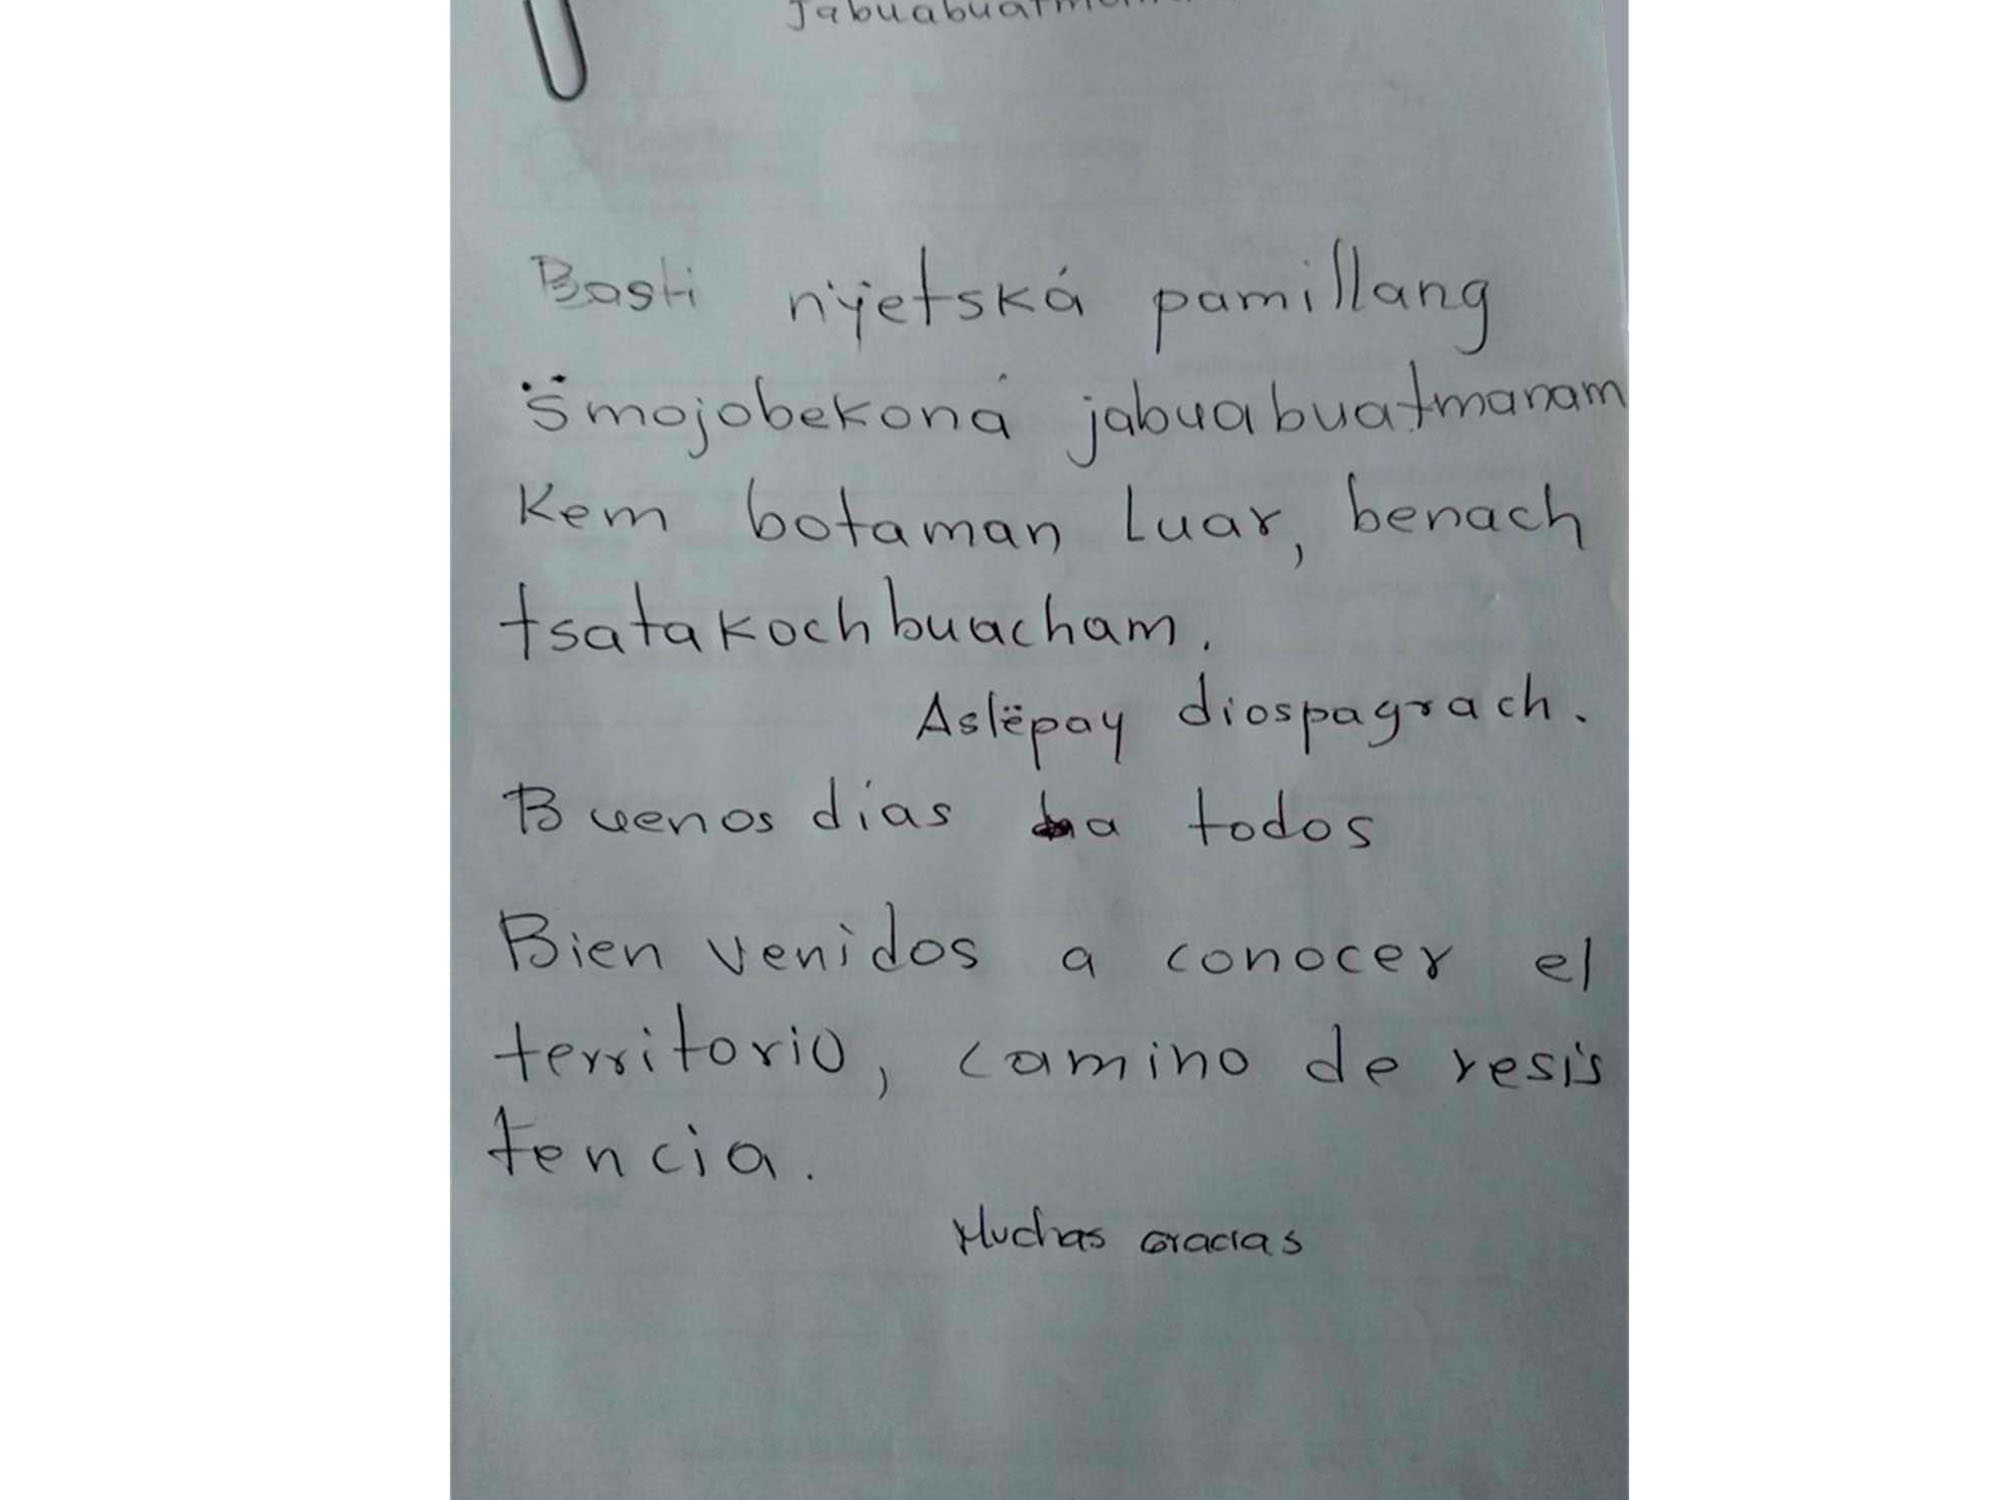 Basti nÿetská pamillang
s̈mojobekoná jabuabuatmanam
Kem botaman Luar, benach
tsatakochbuacham.
Aslëpay diospagrach.
Buenos días a todos
Bien venidos a conocer el
territorio, camino de resis
tencia.
Muchas Gracias